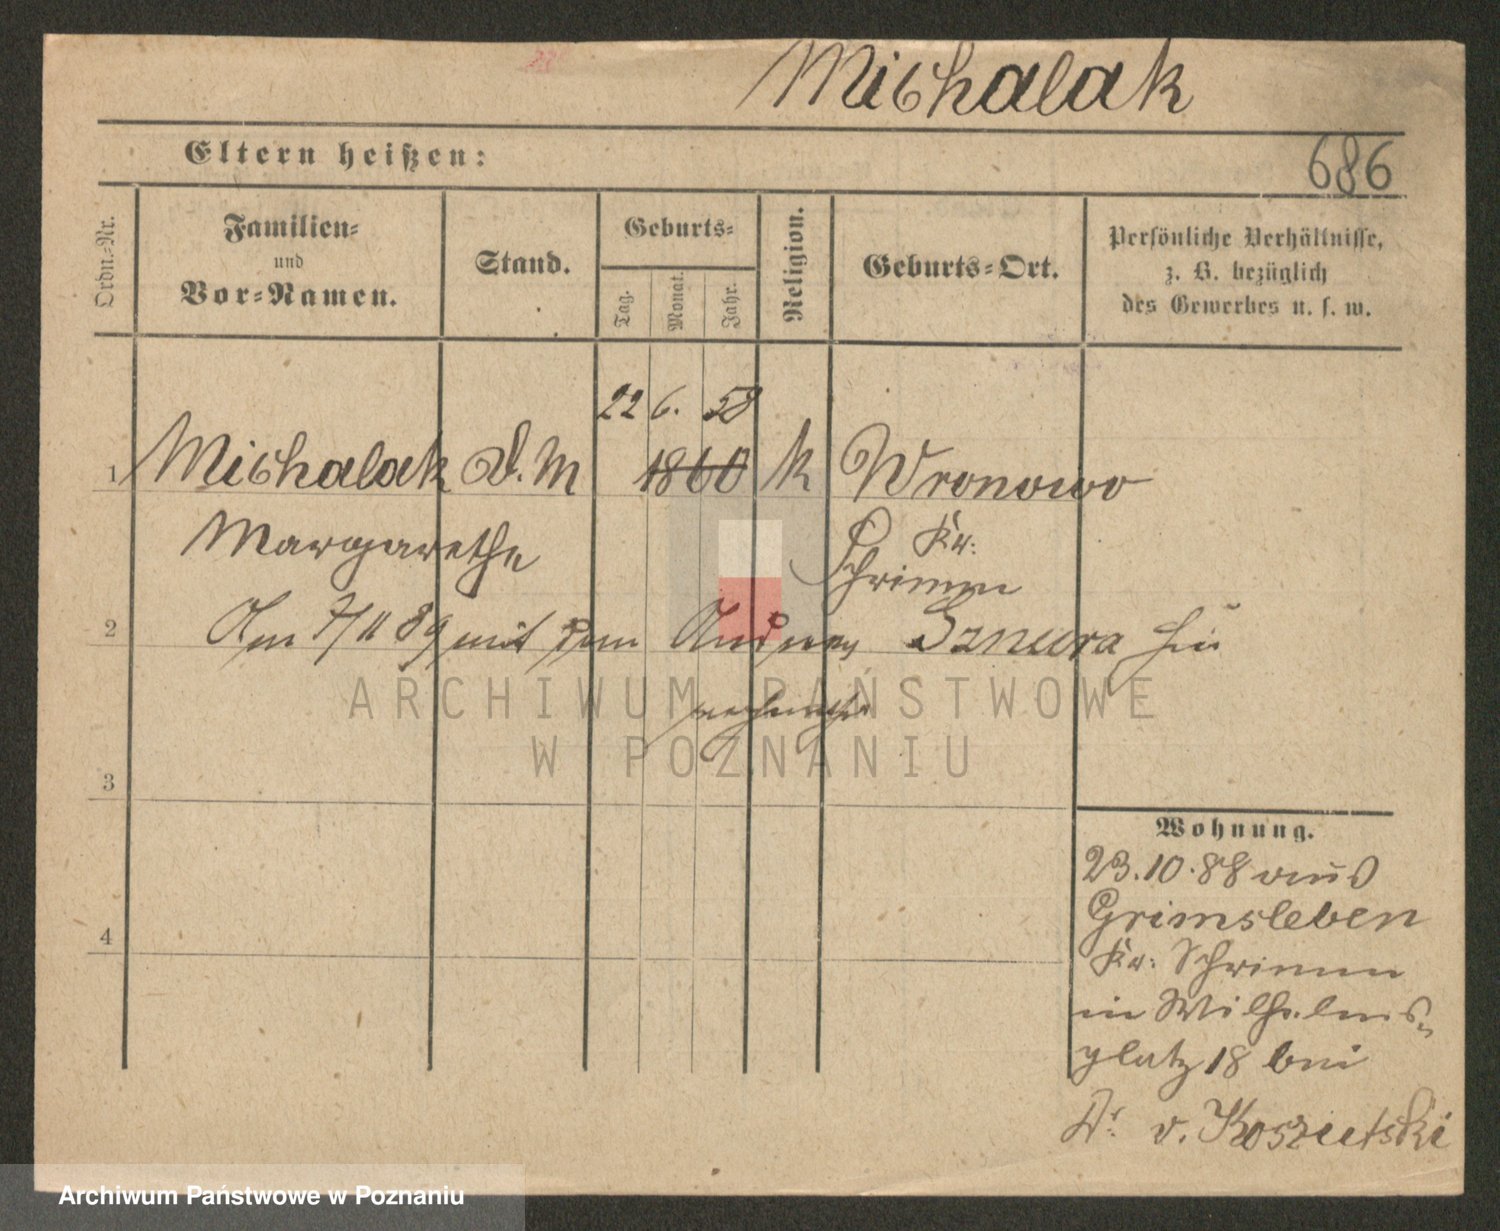 Michalak
Eltern heißen:
686
Ordn.-Nr.
Familien-
und
Vor-Namen.
Stand.
Geburts-
Tag.
Monat.
Jahr.
Religion.
Geburts-Ort.
Persönliche Verhältnisse,
z. B. bezüglich
des Gewerbes u. s. w.
22 6. 58
1 Michalak D.M 1860 k Wronowo
Margarethe Kr:
Schrimm
2 Am 7/11 89 mit dem Andreas Sznura hier
verheirathet
ARCHIWUM PAŃSTWOWE
W POZNANIU
3
4
Wohnung.
23.10.88 aus
Grimsleben
Kr: Schrimm
in Wilhelms-
platz 18 bei
Dr. v. Koszutski
Archiwum Państwowe w Poznaniu